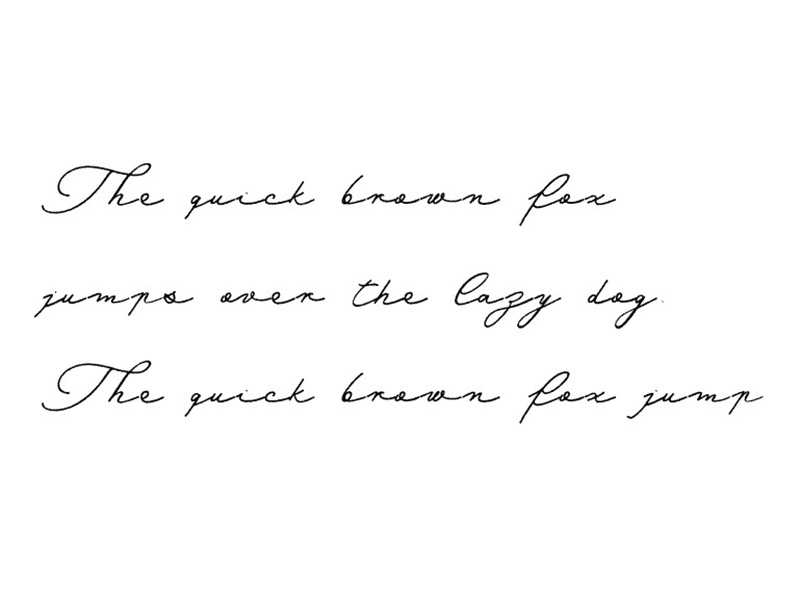 The quick brown fox
jumps over the lazy dog.
The quick brown fox jump